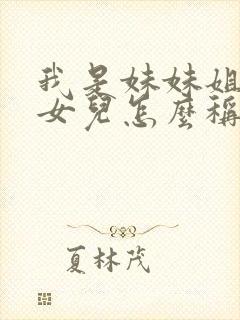 我是妹妹姐
女兒怎麼稱
夏林茂